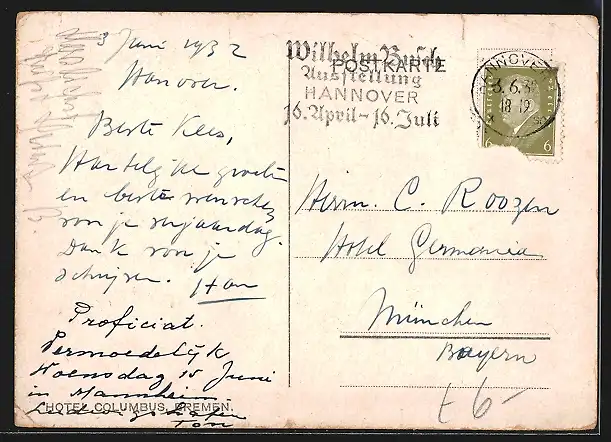 3 Juni 1932
Hannover.
Beste Kees,
Hartelijke groeten
en beste wenschen
van je verjaardag.
Dank van je
schrijven. Han
Proficiat.
Vermoedelijk
Woensdag 15 Juni
in Mannheim
Ton
HOTEL COLUMBUS, BREMEN.
Wilhelm Busch
Ausstellung
HANNOVER
16. April - 16. Juli
POSTKARTE
HANNOVER
3.6.32
18-19
6 6
Herrn. C. Roozen
Hotel Germania
München
Bayern
6-